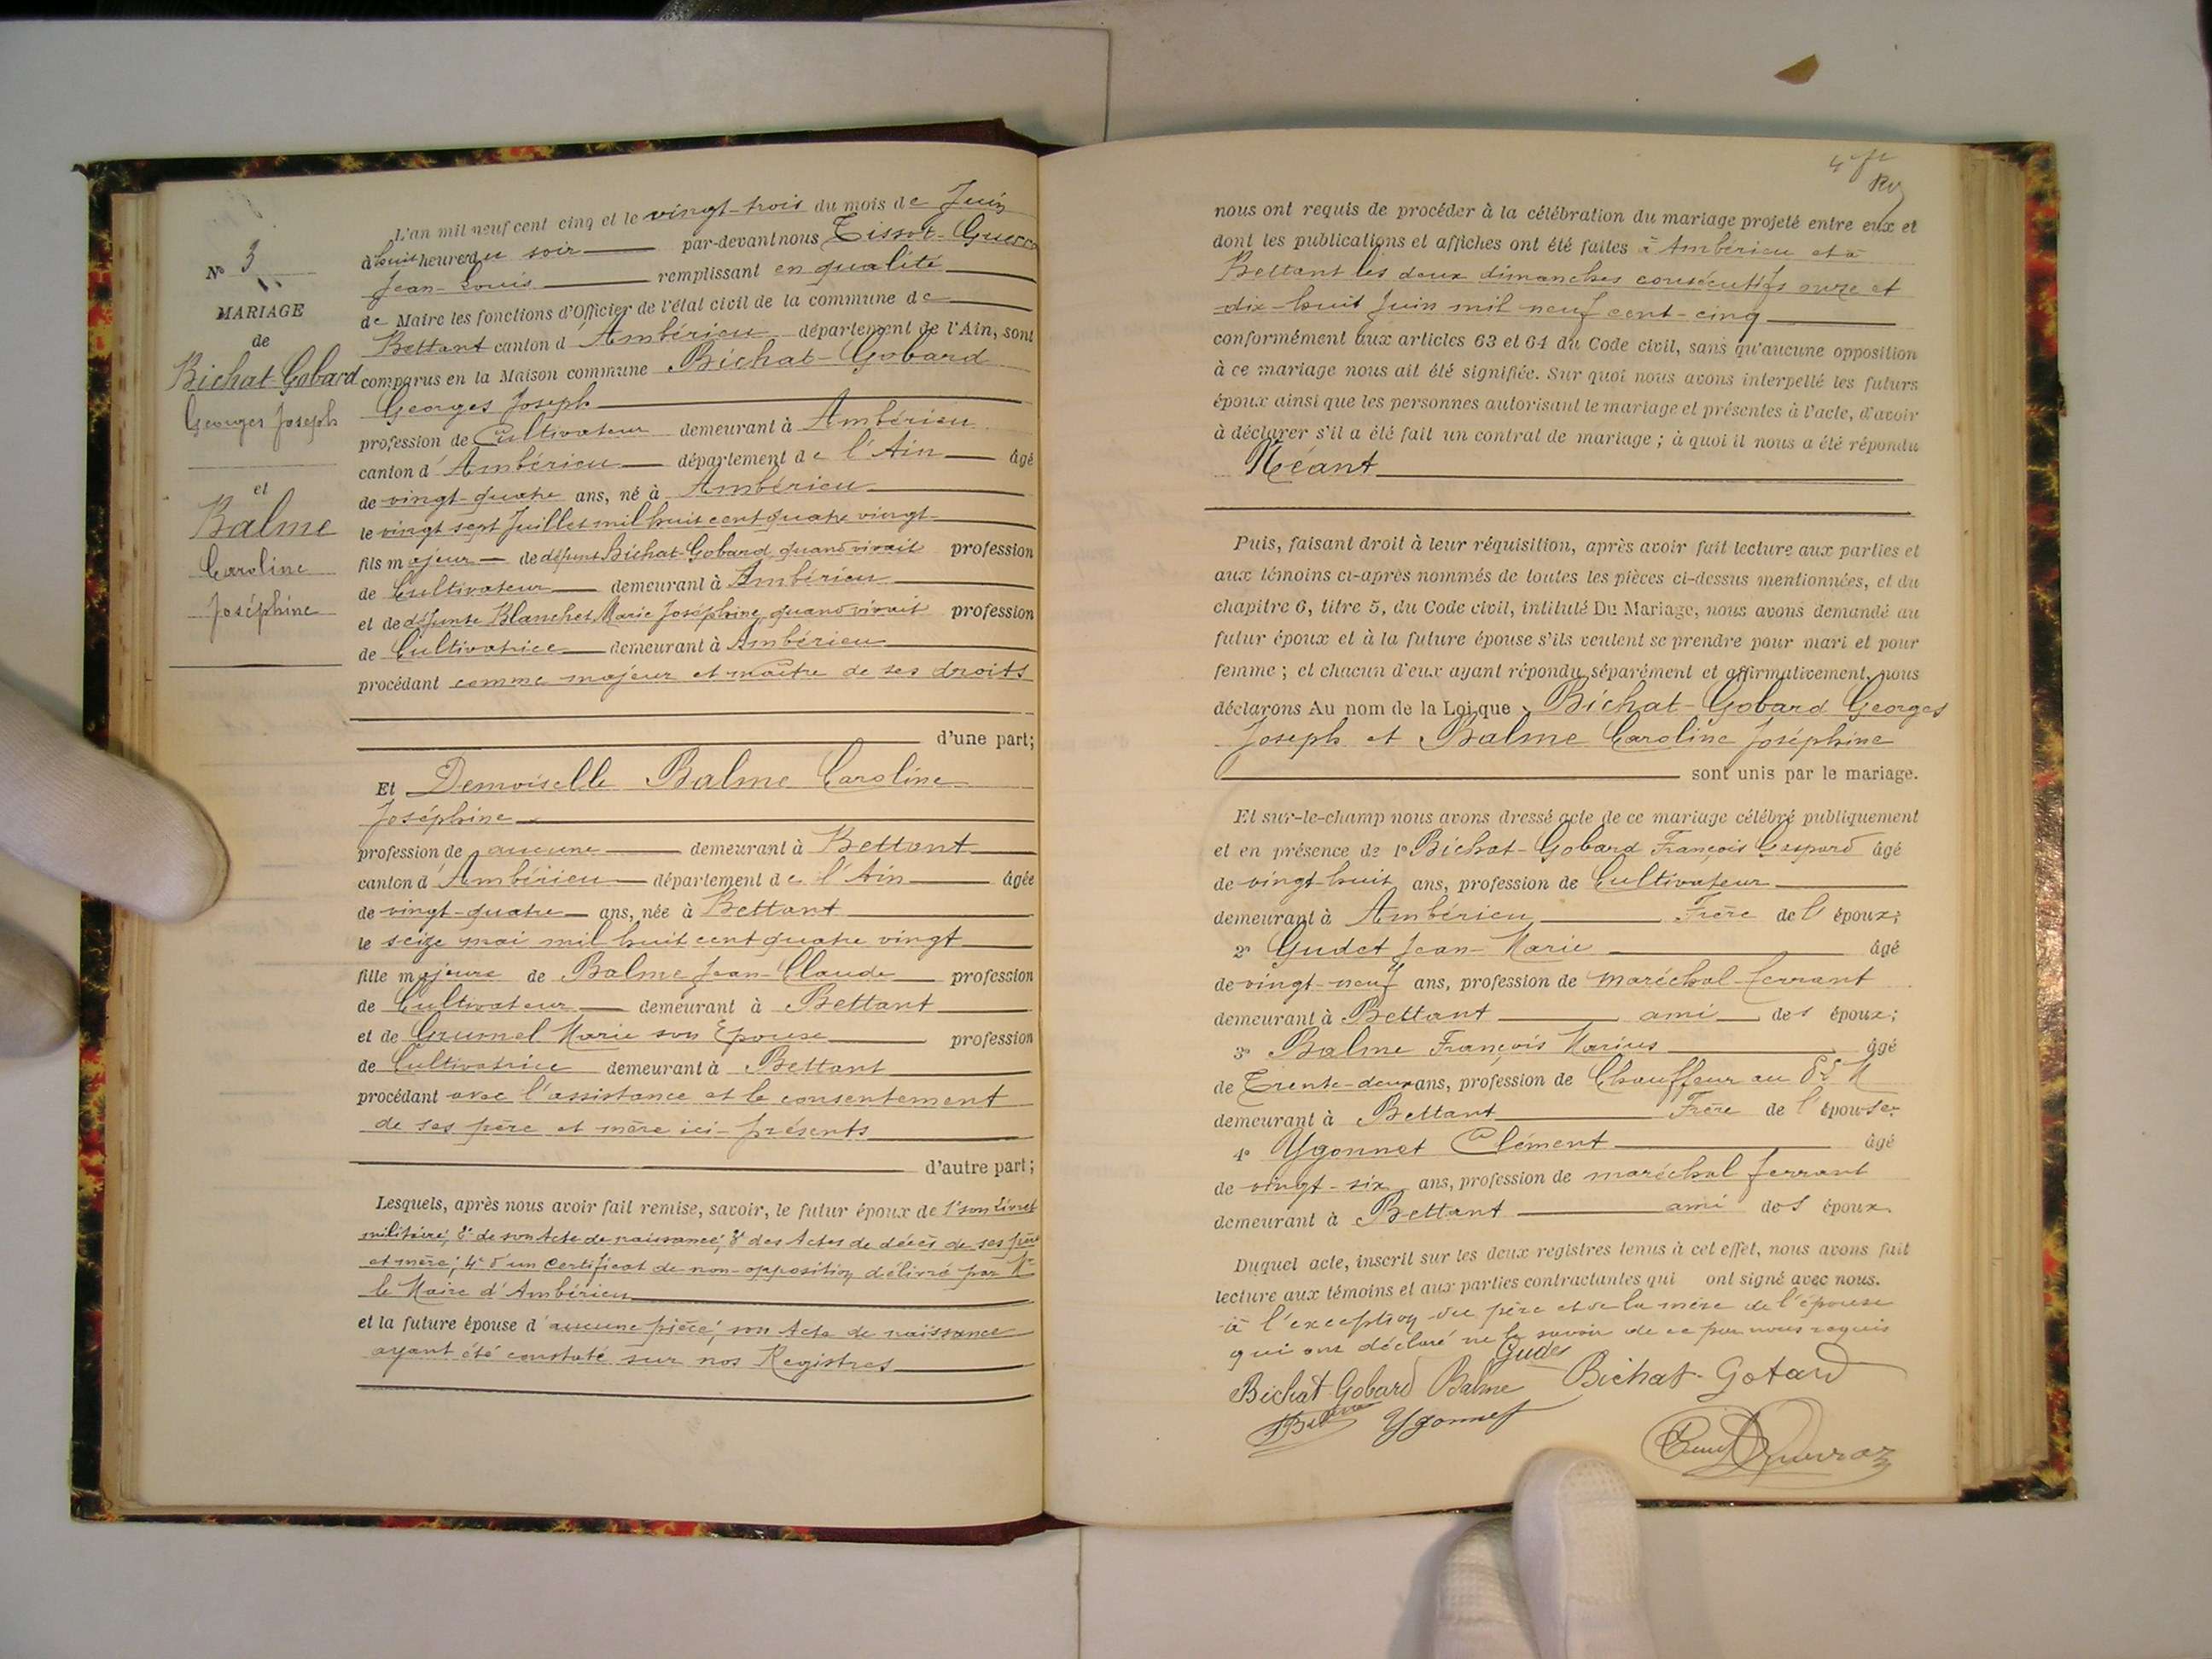 N° 3
MARIAGE
de
Bichat-Gobard
Georges Joseph
et
Balme
Caroline
Joséphine
L'an mil neuf cent cinq et le vingt-trois du mois de Juin
à huit heures du soir par-devant nous Tissot-Guerraz
Jean-Louis remplissant en qualité
de Maire les fonctions d'Officier de l'état civil de la commune de
Bettant canton d'Ambérieu département de l'Ain, sont
comparus en la Maison commune Bichat-Gobard
Georges Joseph
profession de Cultivateur demeurant à Ambérieu
canton d'Ambérieu département de l'Ain âgé
de vingt-quatre ans, né à Ambérieu
le vingt sept Juillet mil huit cent quatre vingt
fils majeur de défunt Bichat-Gobard quand vivait profession
de Cultivateur demeurant à Ambérieu
et de défunte Blanchet Marie Joséphine quand vivait profession
de Cultivatrice demeurant à Ambérieu
procédant comme majeur et maître de ses droits
d'une part;
Et Demoiselle Balme Caroline
Joséphine
profession de aucune demeurant à Bettant
canton d'Ambérieu département de l'Ain âgée
de vingt-quatre ans, née à Bettant
le seize mai mil huit cent quatre vingt
fille majeure de Balme Jean-Claude profession
de Cultivateur demeurant à Bettant
et de Grumel Marie son Epouse profession
de Cultivatrice demeurant à Bettant
procédant avec l'assistance et le consentement
de ses père et mère ici-présents
d'autre part;
Lesquels, après nous avoir fait remise, savoir, le futur époux de 1° son Livret
militaire; 2° de son Acte de naissance; 3° des Actes de décès de ses père
et mère; 4° d'un Certificat de non-opposition délivré par Mr
le Maire d'Ambérieu
et la future épouse d'aucune pièce, son Acte de naissance
ayant été constaté sur nos Registres
nous ont requis de procéder à la célébration du mariage projeté entre eux et
dont les publications et affiches ont été faites à Ambérieu et à
Bettant les deux dimanches consécutifs onze et
dix-huit Juin mil neuf cent-cinq
conformément aux articles 63 et 64 du Code civil, sans qu'aucune opposition
à ce mariage nous ait été signifiée. Sur quoi nous avons interpellé les futurs
époux ainsi que les personnes autorisant le mariage et présentes à l'acte, d'avoir
à déclarer s'il a été fait un contrat de mariage; à quoi il nous a été répondu
Néant
Puis, faisant droit à leur réquisition, après avoir fait lecture aux parties et
aux témoins ci-après nommés de toutes les pièces ci-dessus mentionnées, et du
chapitre 6, titre 5, du Code civil, intitulé Du Mariage, nous avons demandé au
futur époux et à la future épouse s'ils veulent se prendre pour mari et pour
femme; et chacun d'eux ayant répondu séparément et affirmativement, nous
déclarons Au nom de la Loi que Bichat-Gobard Georges
Joseph et Balme Caroline Joséphine
sont unis par le mariage.
Et sur-le-champ nous avons dressé acte de ce mariage célébré publiquement
et en présence de 1° Bichat-Gobard François Gaspard âgé
de vingt-huit ans, profession de Cultivateur
demeurant à Ambérieu Frère de l'époux;
2° Gudet Jean-Marie âgé
de vingt-neuf ans, profession de maréchal-ferrant
demeurant à Bettant ami des époux;
3° Balme François Marius âgé
de Trente-deux ans, profession de Chauffeur au
demeurant à Bettant Frère de l'épouse;
4° Ygonnet Clément âgé
de vingt-six ans, profession de maréchal ferrant
demeurant à Bettant ami des époux.
Duquel acte, inscrit sur les deux registres tenus à cet effet, nous avons fait
lecture aux témoins et aux parties contractantes qui ont signé avec nous.
à l'exception du père et de la mère de l'épouse
qui ont déclaré ne le savoir de ce par nous requis
Gudet
Bichat Gobard Balme Bichat-Gobard
Ygonnet